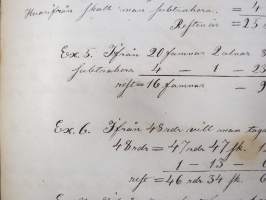 Hvarifrån skall man subtrahera. = 4
Resten är = 25
Ex. 5. Ifrån 20 famnar 2 alnar 3
subtrahera 4 - 1 - 23
rest = 16 famnar - 9
Ex. 6. Ifrån 48 rdr vill man taga
48 rdr = 47 rdr 47 sk. 1
1 - 13 - 6
rest = 46 rdr 34 sk. 6